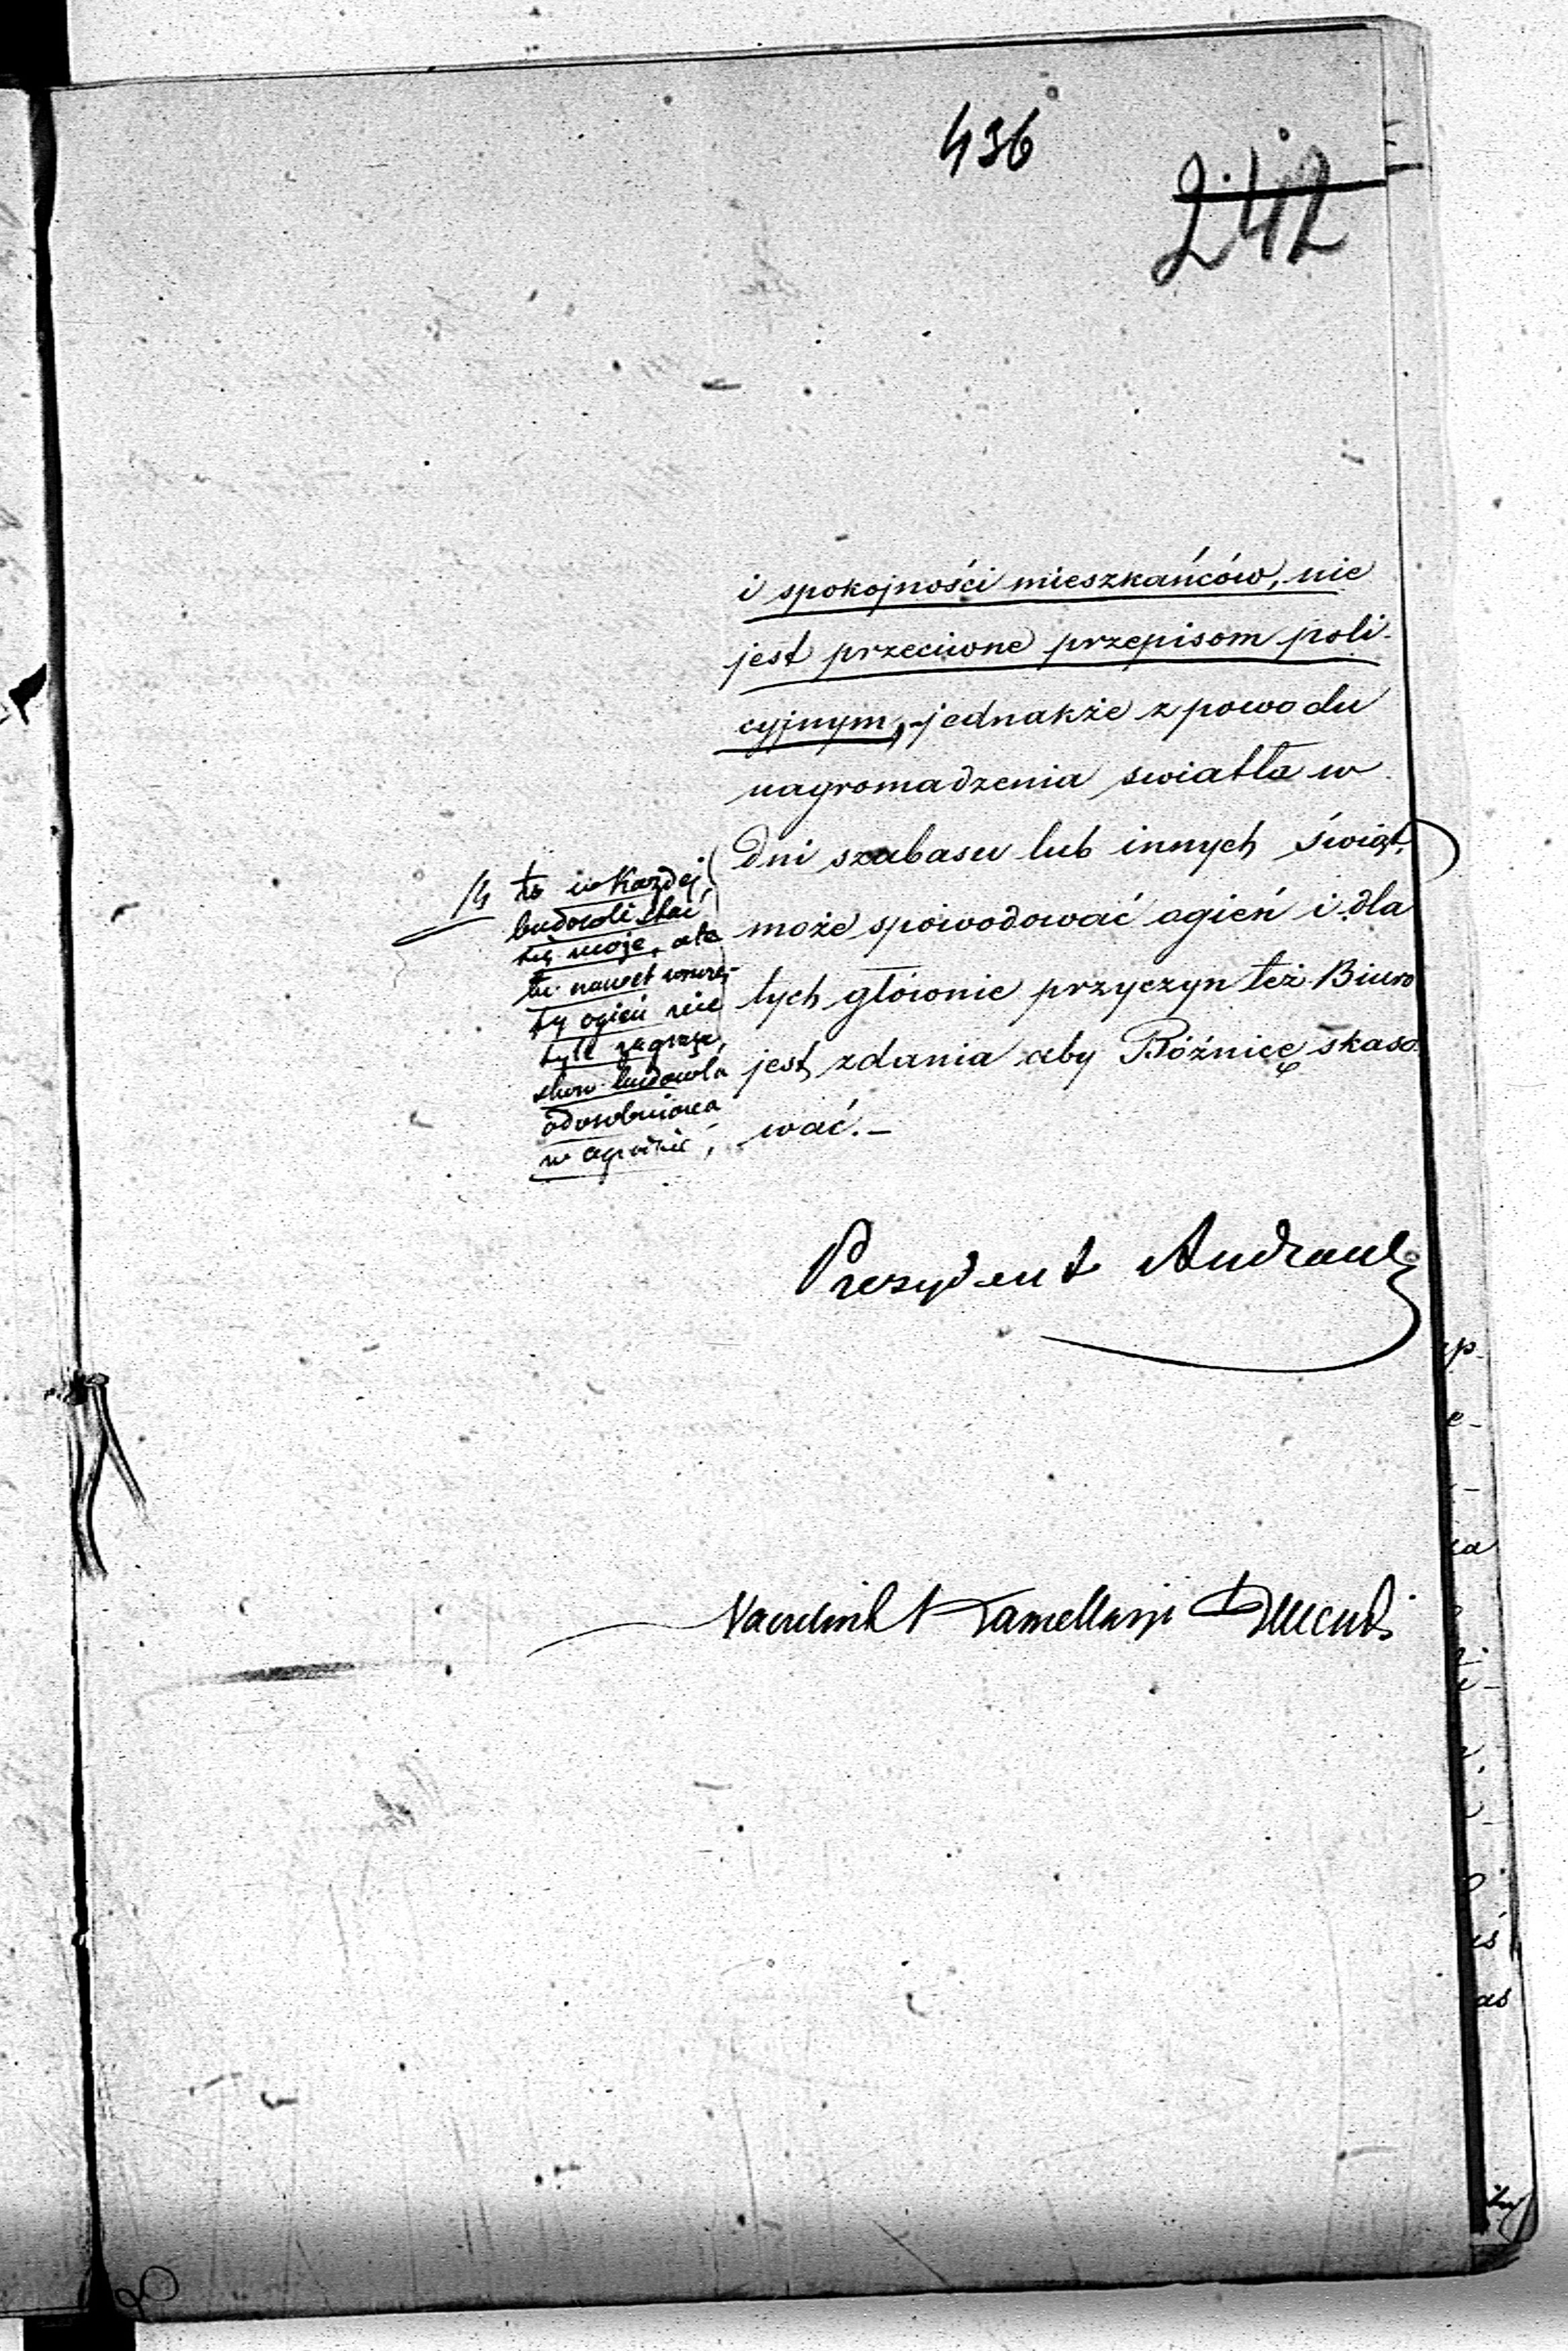 436
242
i spokojności mieszkańców, nie
jest przeciwne przepisom poli-
cyjnym, jednakże z powodu
nagromadzenia swiatła w
dni szabasu lub innych świąt,
może spowodować ogień i dla
tych głównie przyczyn też Biuro
jest zdania aby Bóżnicę skaso
wać.-
to w każdej
budowli stać
się może, ale
tu nawet wszczę-
ty ogień nie
tyle zagraża,
budowla
odosobniona
w ogrodzie,
Prezydent Andrault
Naczelnik Kancellaryi